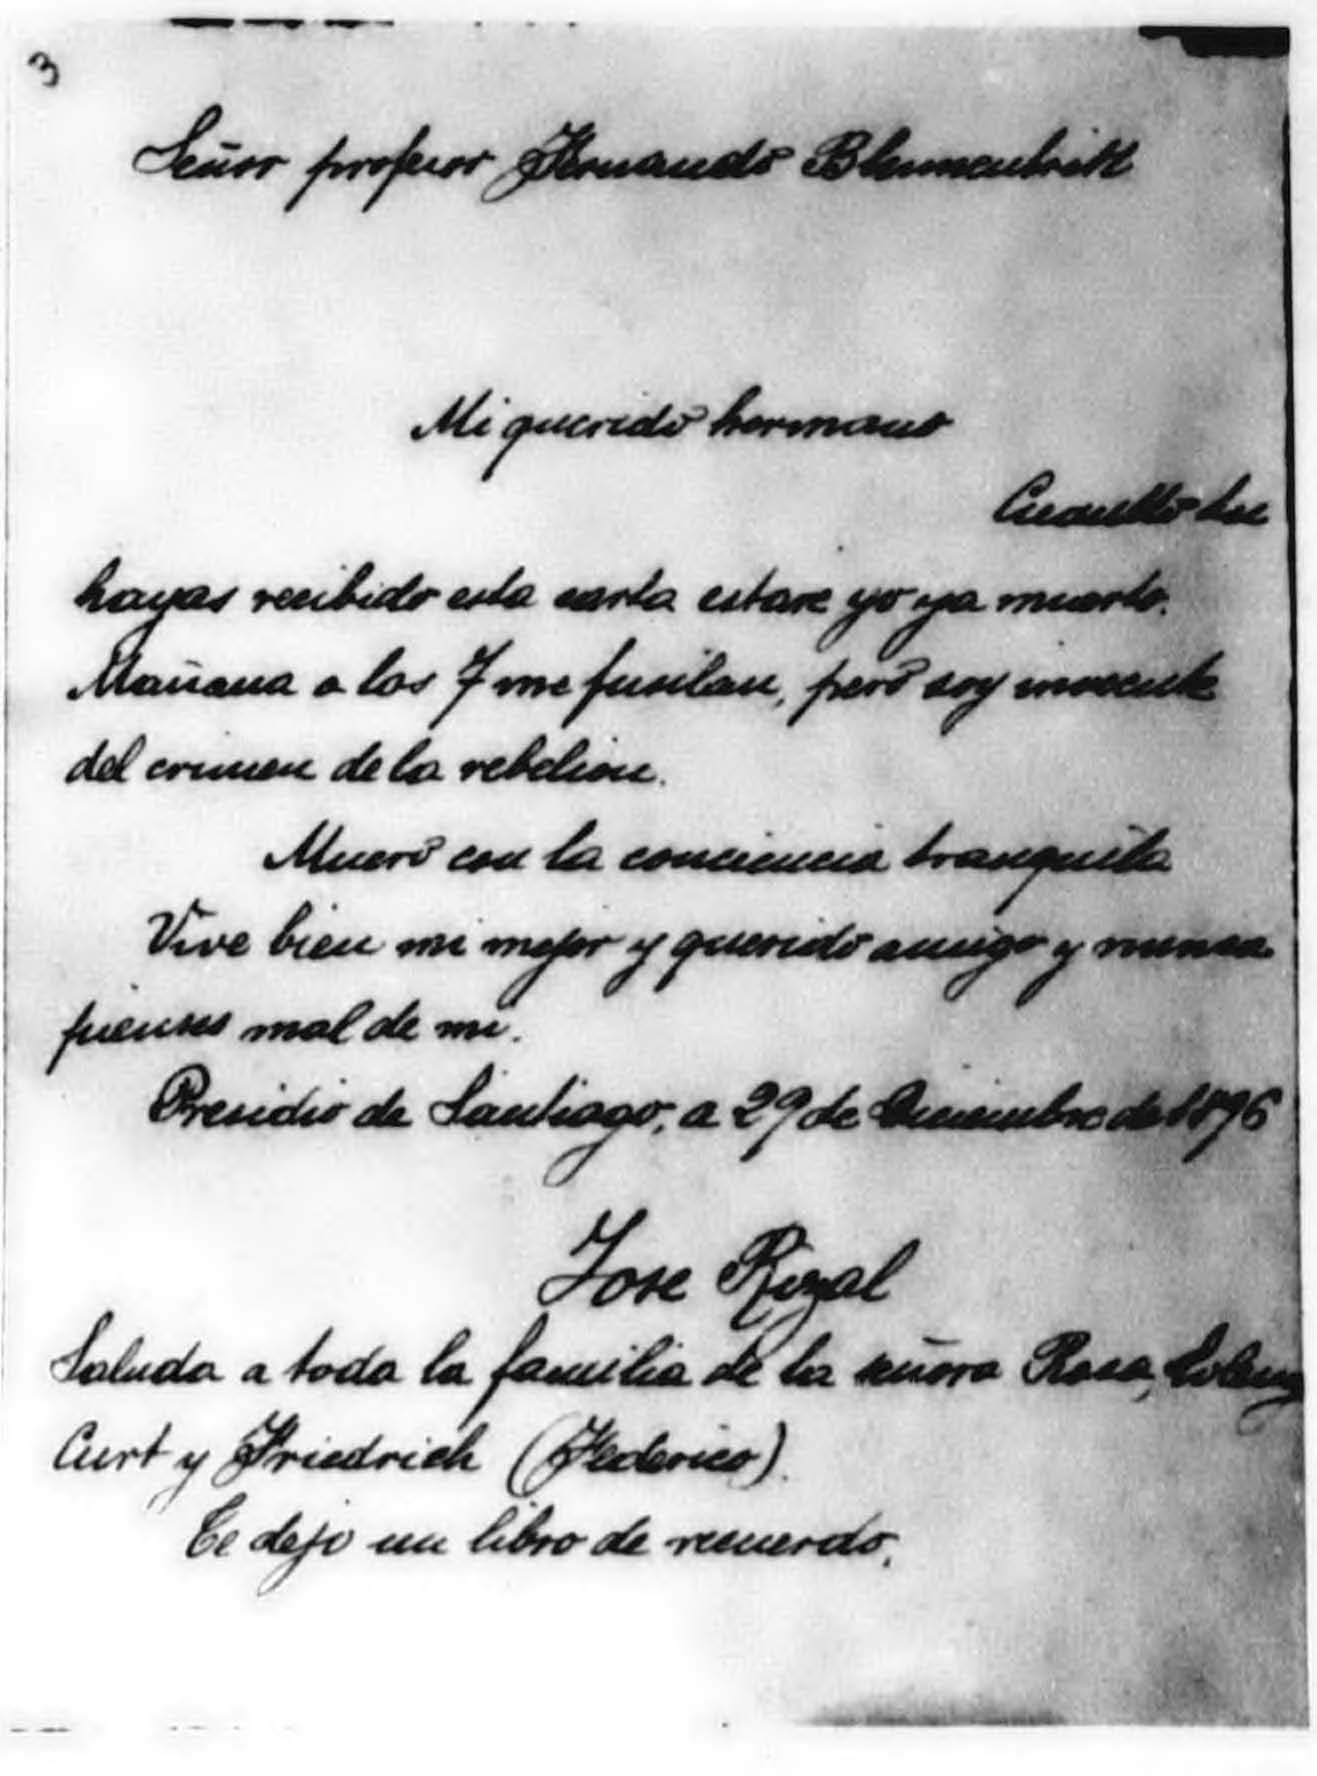 3
Señor profesor Fernando Blumentritt
Mi querido hermano
Cuando tu
hayas recibido esta carta estare yo ya muerto.
Mañana a las 7 me fusilan, pero soy inocente
del crimen de la rebelion.
Muero con la conciencia tranquila
Vive bien mi mejor y querido amigo y nunca
pienses mal de mi.
Presidio de Santiago, a 29 de Diciembre de 1896
Jose Rizal
Saluda a toda la familia de la señora Rosa,
Curt y Friedrich (Federico).
Te dejo un libro de recuerdo.